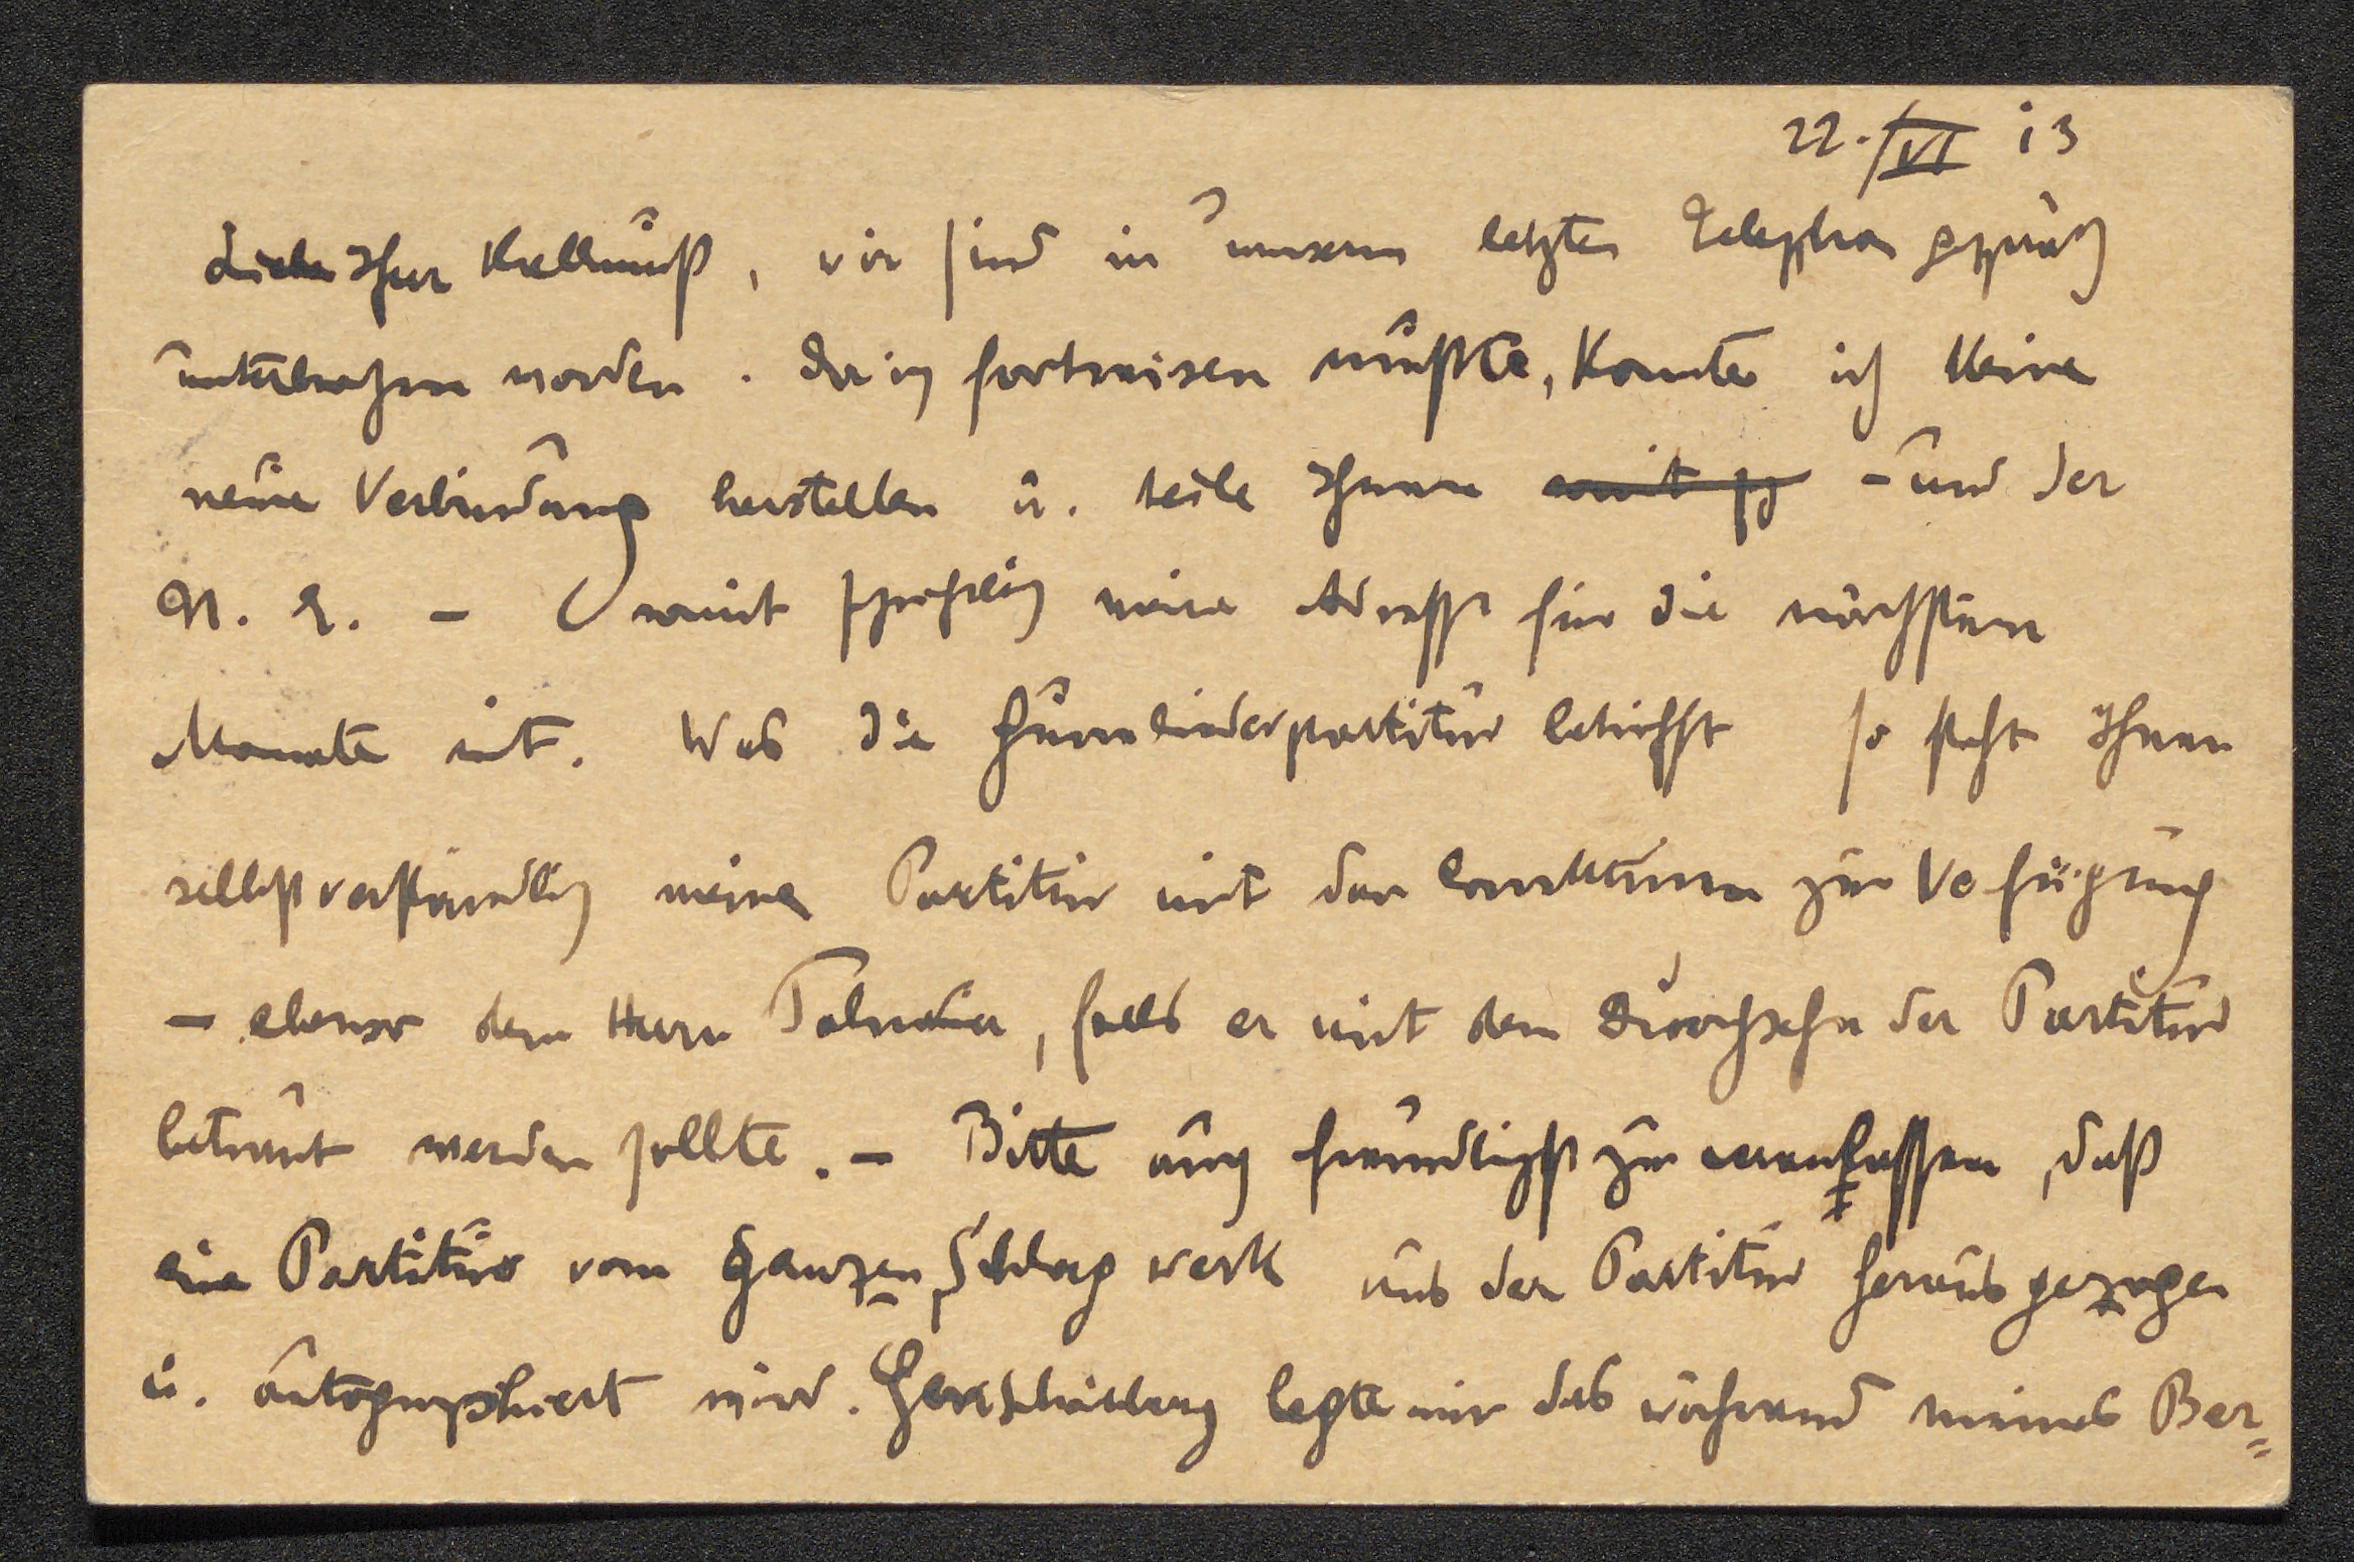 22./VI 13
Lieber Herr Kalmuß, wir sind in unserm letzten Telephongespräch
unterbrochen worden. Da ich fortreisen mußte, konnte ich keine
neue Verbindung herstellen u. teile Ihnen – und der
U. E. – somit schriftlich meine Adresse für die nächsten
Monate mit. Was die Gurreliederpartitur betrifft so steht Ihnen
selbstverständlich meine Partitur mit den Correkturen zur Verfügung
– ebenso dem Herrn Polnauer, falls er mit dem Durchsehn der Partitur
betraut werden sollte. – Bitte auch freundlichst zu veranlassen, daß
eine Partitur vom ganzen Schlagwerk aus der Partitur herausgezogen
u. autographiert wird. Herr Schönberg legte mir das während meines Ber=